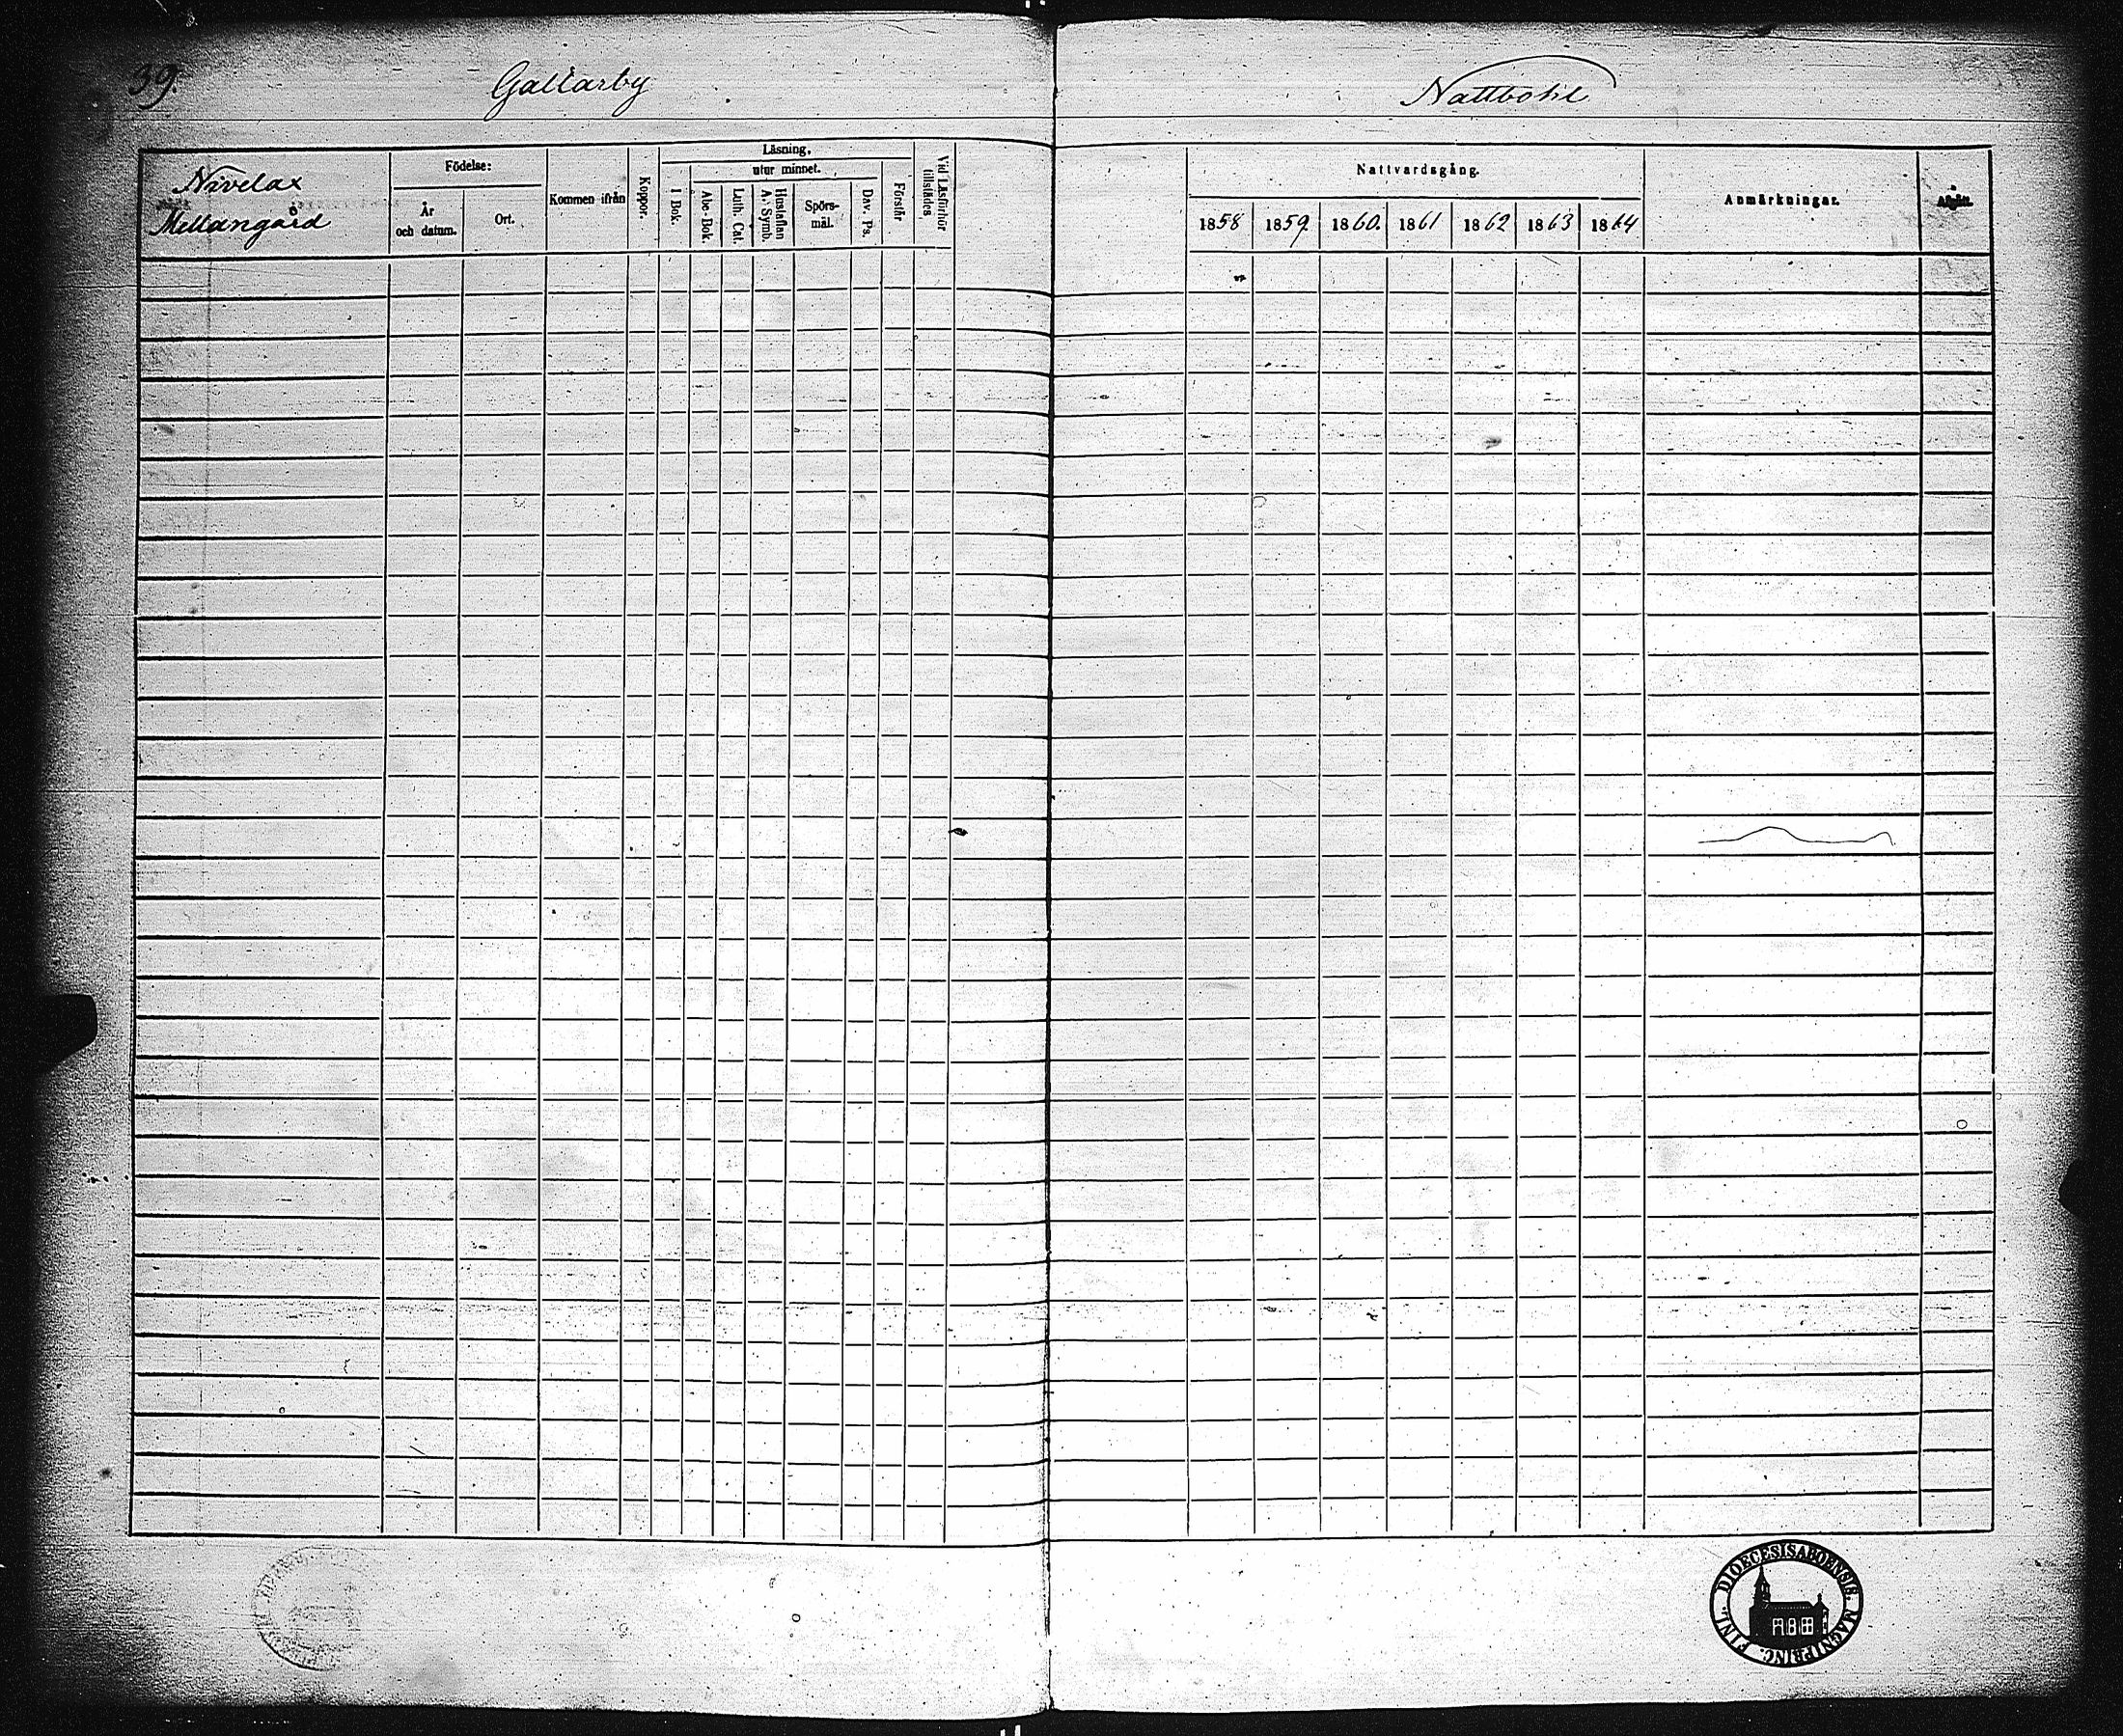 39.
Gallarby
Nattbohl
Nivelax
Mellangård
Födelse:
År
och datum.
Ort.
Kommen ifrån
Koppor.
Läsning,
utur minnet.
I Bok.
Abc-Bok.
Luth. Cat.
Hustaflan
A. Symb.
Spörs-
mål.
Dav. Ps.
Förstår
Vid Läsförhör
tillstädes
Nattvardsgång.
1858 1859. 1860. 1861 1862 1863 1864
Anmärkningar.
Afgått.
DIOECESIS ABOENSIS. MAGNI PRINC. FINL.